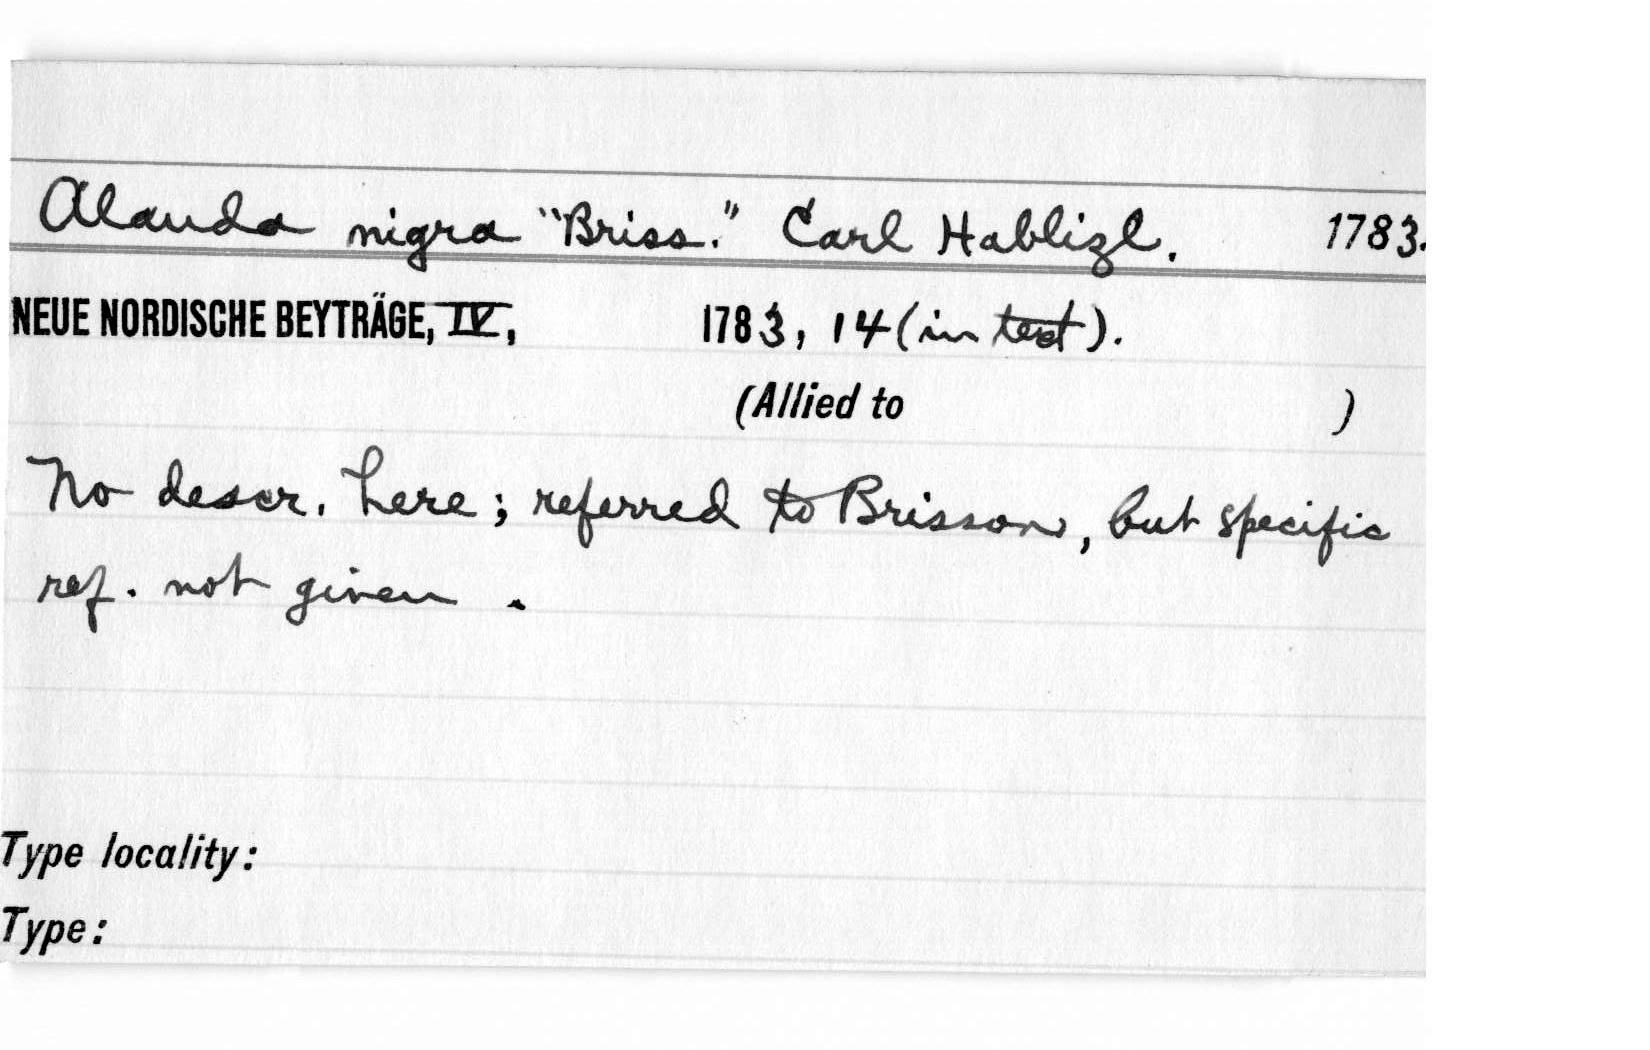 Alauda nigra "Briss." Carl Hablizl. 1783.
NEUE NORDISCHE BEYTRÄGE, IV, 1783, 14 (in text).
(Allied to )
No descr. here; referred to Brisson, but specific
ref. not given.
Type locality:
Type: